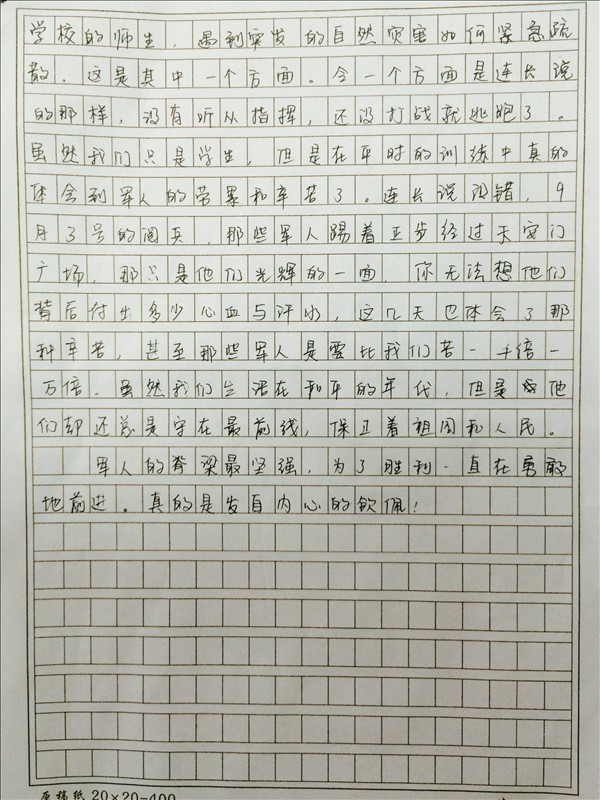 学校的师生，遇到突发的自然灾害如何紧急疏
散。这是其中一个方面。令一个方面是连长说
的那样，没有听从指挥，还没打战就逃跑了。
虽然我们只是学生，但是在平时的训练中真的
体会到军人的劳累和辛苦了。连长说没错，9
月3号的阅兵，那些军人踢着正步经过天安门
广场，那只是他们光辉的一面，你无法想他们
背后付出多少心血与汗水，这几天也体会了那
种辛苦，甚至那些军人是要比我们苦一千倍一
万倍。虽然我们生活在和平的年代，但是他
们却还总是守在最前线，保卫着祖国和人民。
军人的脊梁最坚强，为了胜利一直在勇敢
地前进。真的是发自内心的钦佩！
原稿纸 20×20=400